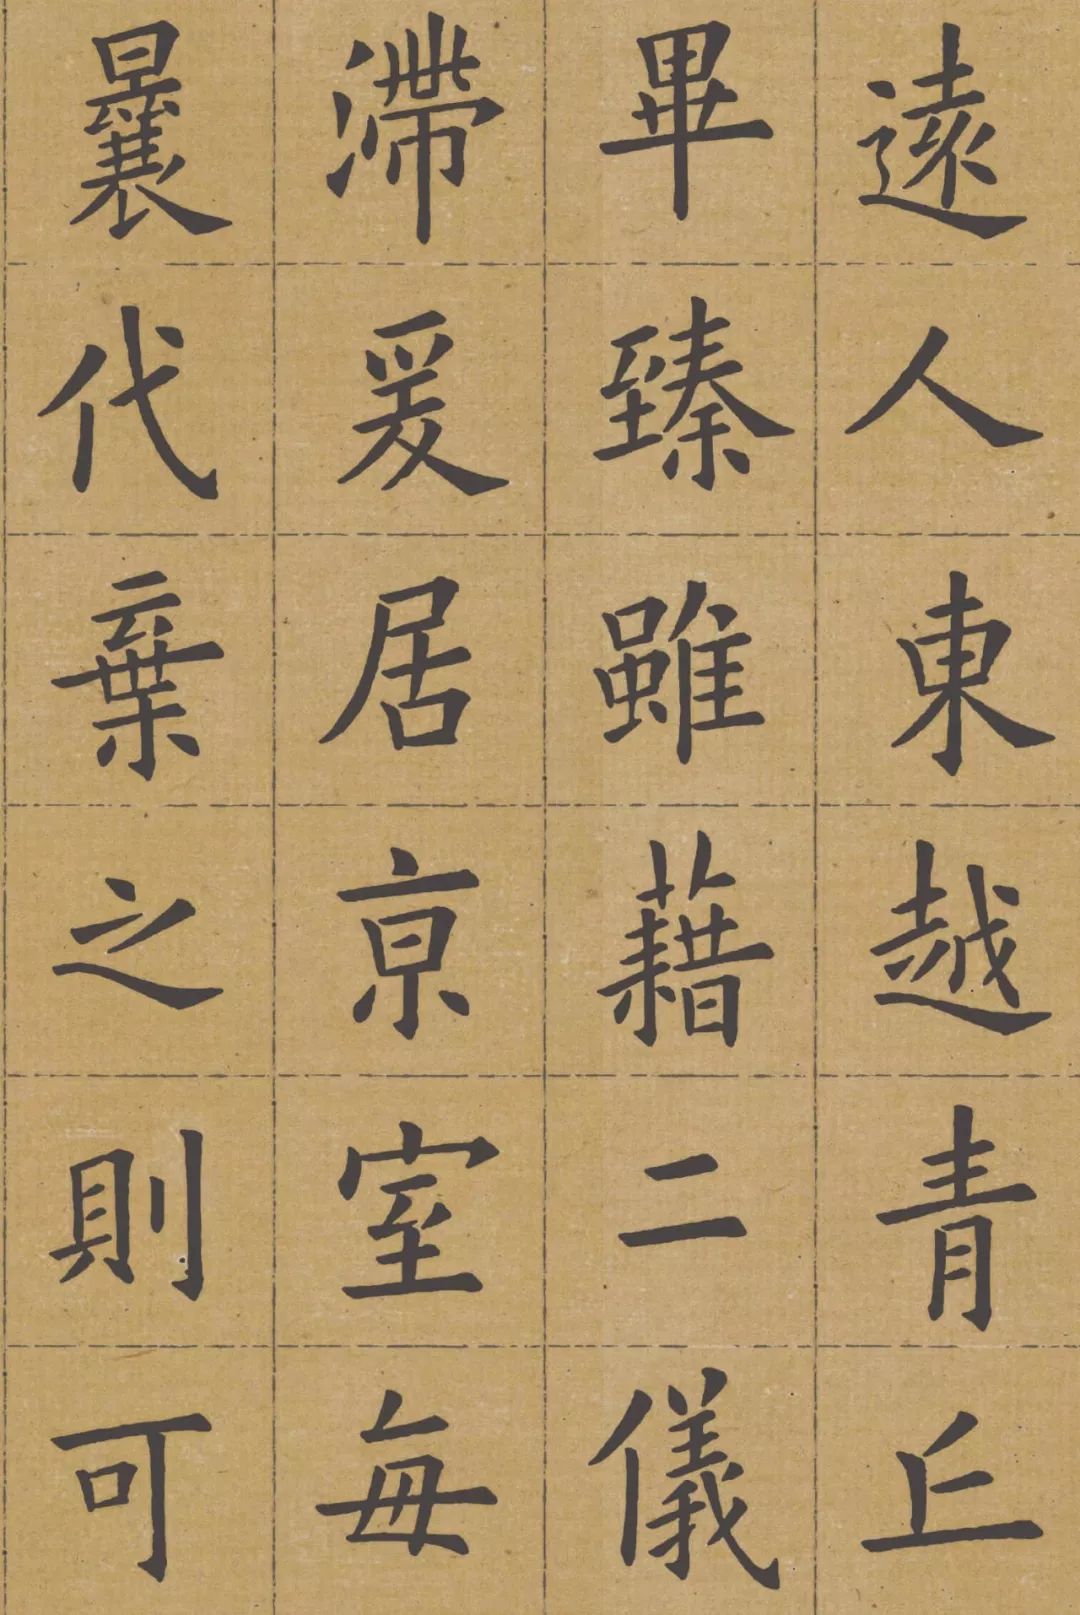 遠人東越青丘
畢臻雖藉二儀
滯爰居京室每
曩代棄之則可